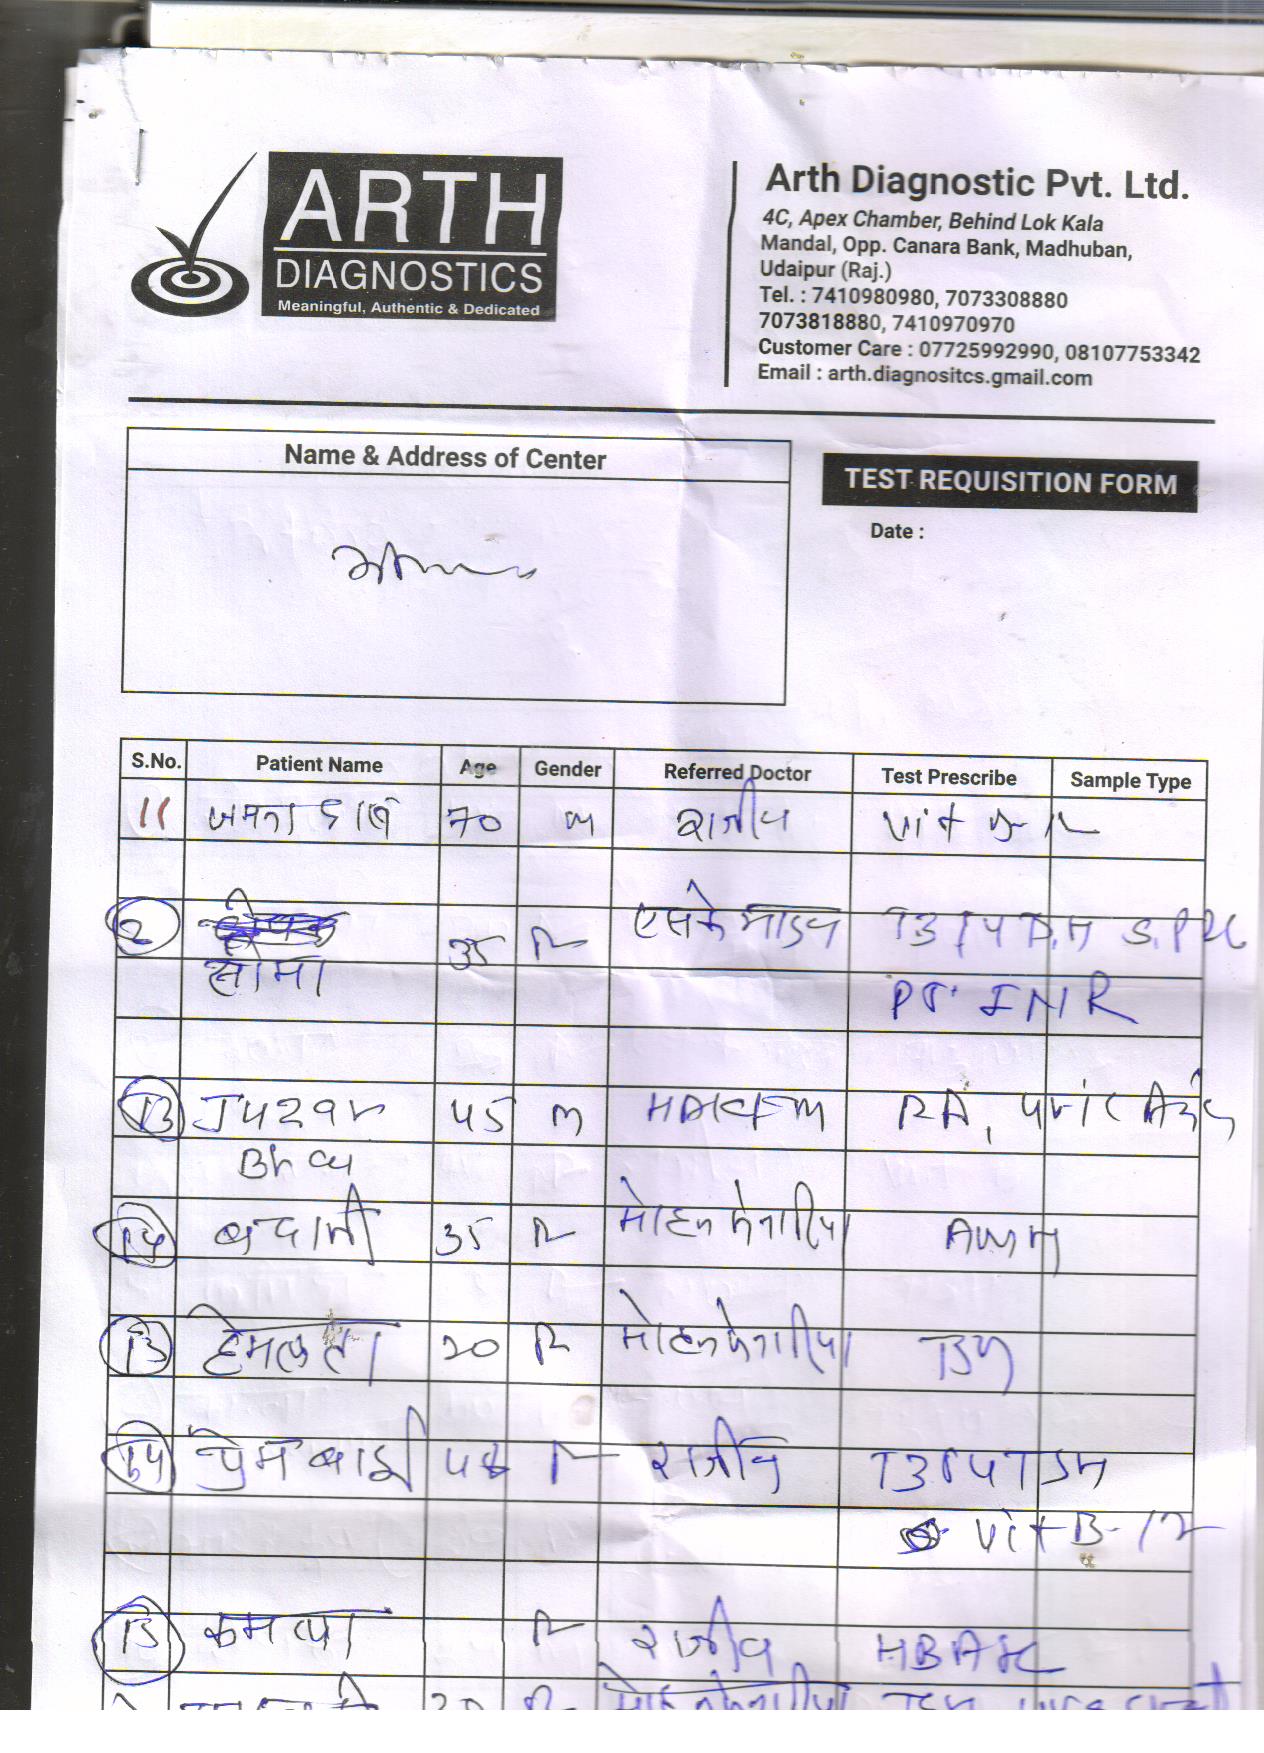 ARTH
DIAGNOSTICS
Meaningful, Authentic & Dedicated
Arth Diagnostic Pvt. Ltd.
4C, Apex Chamber, Behind Lok Kala
Mandal, Opp. Canara Bank, Madhuban,
Udaipur (Raj.)
Tel. : 7410980980, 7073308880
7073818880, 7410970970
Customer Care : 07725992990, 08107753342
Email : arth.diagnositcs.gmail.com
Name & Address of Center
TEST REQUISITION FORM
Date :
S.No. Patient Name Age Gender Referred Doctor Test Prescribe Sample Type
11 70 M राजीव Vit B-12
2 35 F T3 T4
सोमा
PT INR
13 45 M HAKIM RA, Uric
Bhai
14 35 F मोहन AMH
13 हेमलता 20 F मोहन
14 प्रेम बाई F राजीव T3 T4 TSH
Vit B-12
13 कमला F राजीव HBA1C